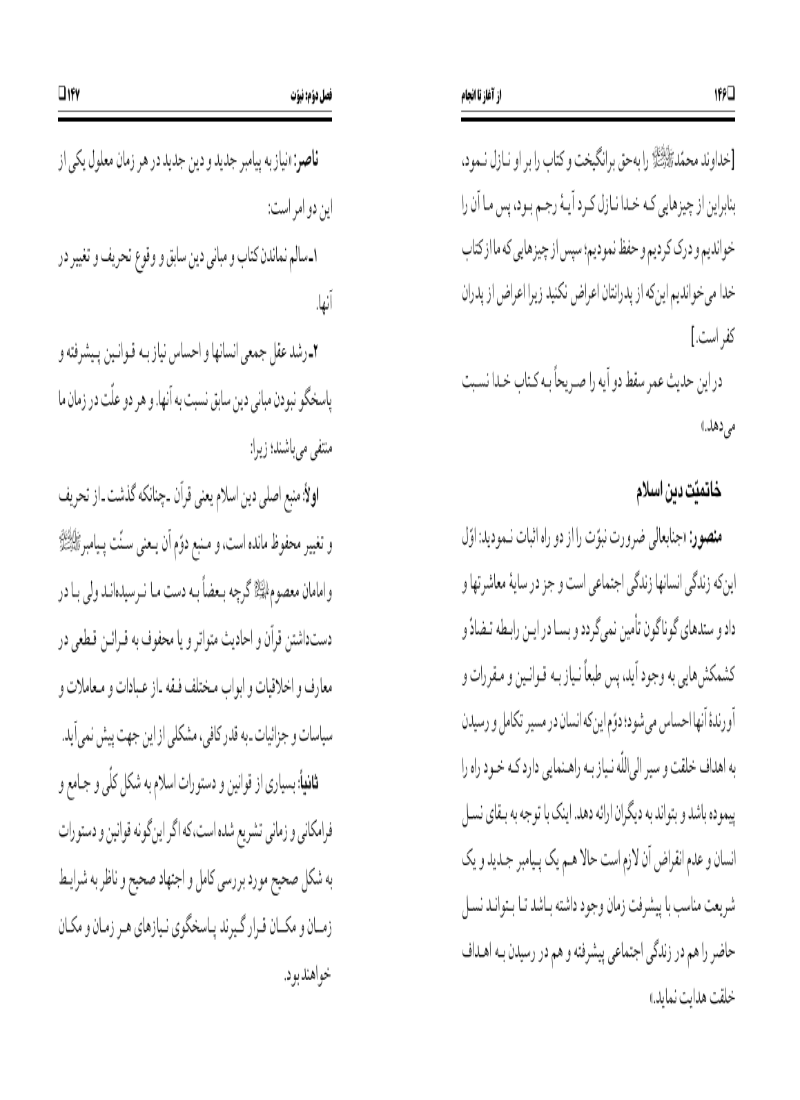 ❑ ۱۴۶
از آغاز تا انجام
[خداوند محمّدﷺ را به‌حق برانگیخت و کتاب را بر او نازل نمود،
بنابراین از چیزهایی که خدا نازل کرد آیهٔ رجم بود، پس ما آن را
خواندیم و درک کردیم و حفظ نمودیم؛ سپس از چیزهایی که ما از کتاب
خدا می‌خواندیم این‌که از پدرانتان اعراض نکنید زیرا اعراض از پدران
کفر است.]
در این حدیث عمر سقط دو آیه را صریحاً به کتاب خدا نسبت
می‌دهد.»
خاتمیّت دین اسلام
منصور: «جنابعالی ضرورت نبوّت را از دو راه اثبات نمودید: اوّل
این‌که زندگی انسانها زندگی اجتماعی است و جز در سایهٔ معاشرتها و
داد و ستدهای گوناگون تأمین نمی‌گردد و بسا در این رابطه تضادّ و
کشمکش‌هایی به وجود آید، پس طبعاً نیاز به قوانین و مقررات و
آورندهٔ آنها احساس می‌شود؛ دوّم این‌که انسان در مسیر تکامل و رسیدن
به اهداف خلقت و سیر الی‌اللّه نیاز به راهنمایی دارد که خود راه را
پیموده باشد و بتواند به دیگران ارائه دهد. اینک با توجه به بقای نسل
انسان و عدم انقراض آن لازم است حالا هم یک پیامبر جدید و یک
شریعت مناسب با پیشرفت زمان وجود داشته باشد تا بتواند نسل
حاضر را هم در زندگی اجتماعی پیشرفته و هم در رسیدن به اهداف
خلقت هدایت نماید.»
فصل دوّم: نبوّت
۱۴۷ ❑
ناصر: «نیاز به پیامبر جدید و دین جدید در هر زمان معلول یکی از
این دو امر است:
۱ـ سالم نماندن کتاب و مبانی دین سابق و وقوع تحریف و تغییر در
آنها.
۲ـ رشد عقل جمعی انسانها و احساس نیاز به قوانین پیشرفته و
پاسخگو نبودن مبانی دین سابق نسبت به آنها. و هر دو علّت در زمان ما
منتفی می‌باشند؛ زیرا:
اولاً: منبع اصلی دین اسلام یعنی قرآن ـ چنانکه گذشت ـ از تحریف
و تغییر محفوظ مانده است، و منبع دوّم آن یعنی سنّت پیامبرﷺ
و امامان معصوم گرچه بعضاً به دست ما نرسیده‌اند ولی با در
دست‌داشتن قرآن و احادیث متواتر و یا محفوف به قرائن قطعی در
معارف و اخلاقیات و ابواب مختلف فقه ـ از عبادات و معاملات و
سیاسات و جزائیات ـ به قدر کافی، مشکلی از این جهت پیش نمی‌آید.
ثانیاً: بسیاری از قوانین و دستورات اسلام به شکل کلّی و جامع و
فرامکانی و زمانی تشریع شده است، که اگر این‌گونه قوانین و دستورات
به شکل صحیح مورد بررسی کامل و اجتهاد صحیح و ناظر به شرایط
زمان و مکان قرار گیرند پاسخگوی نیازهای هر زمان و مکان
خواهند بود.